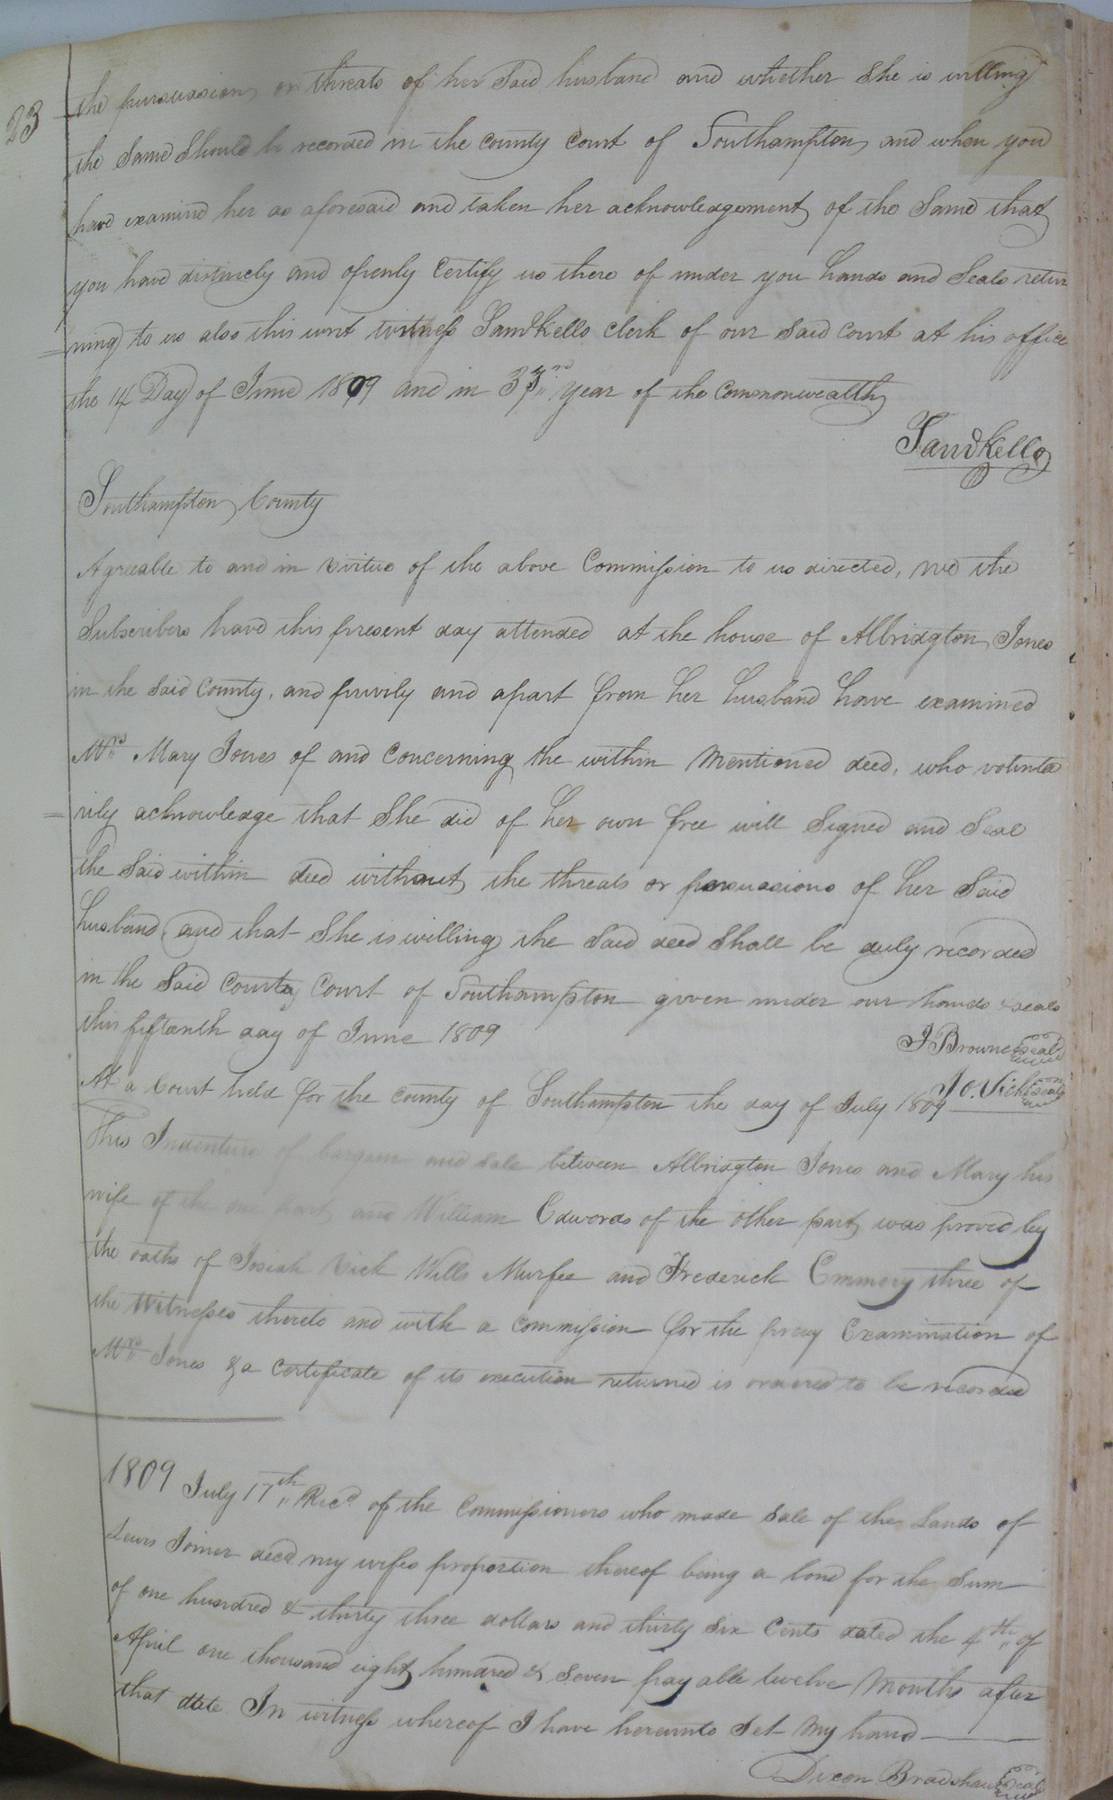 23
the pursuasion or threats of her Said husband and whether She is willing
the Same Should be recorded in the county court of Southampton and when you
have examind her as aforesaid and taken her acknowledgement of the Same that
you have distinctly and openly Certify us there of under you hands and Seals retur
ning to us also this writ witness Saml Kello clerk of our Said Court at his office
the 14 Day of June 1809 and in 33rd year of the Commonwealth
Saml Kello
Southampton County
Agreeable to and in virtue of the above Commission to us directed, we the
Subscribers have this present day attended at the house of Albridgton Jones
in the Said County, and privily and apart from her husband have examined
Mrs Mary Jones of and Concerning the within Mentioned deed, who volunta
rily acknowledge that She did of her own free will Signed and Seal
the Said within deed without the threats or persuasions of her Said
husband and that She is willing the Said deed Shall be duly recorded
in the Said County Court of Southampton given under our hands & seals
this fifteenth day of June 1809
J Browne Seal
Jo. Vick Seal
At a Court held for the County of Southampton the day of July 1809
This Indenture of bargain and sale between Albridgton Jones and Mary his
wife of the one part and William Edwards of the other part was proved by
the oaths of Josiah Vick Wills Murfee and Frederick Emmory three of
the Witnesses thereto and with a commission for the privy Examination of
Mrs Jones & a Certificate of its execution returned is ordered to be recorded
1809 July 17th Recd of the Commissioners who made Sale of the Lands of
Lewis Joiner decd my wifes proportion thereof being a bond for the Sum
of one hundred & thirty three dollars and thirty Six Cents dated the 4th of
April one thousand eight hundred & Seven payable twelve Months after
that date In witness whereof I have hereunto Set My hand
Dixon Bradshaw Seal